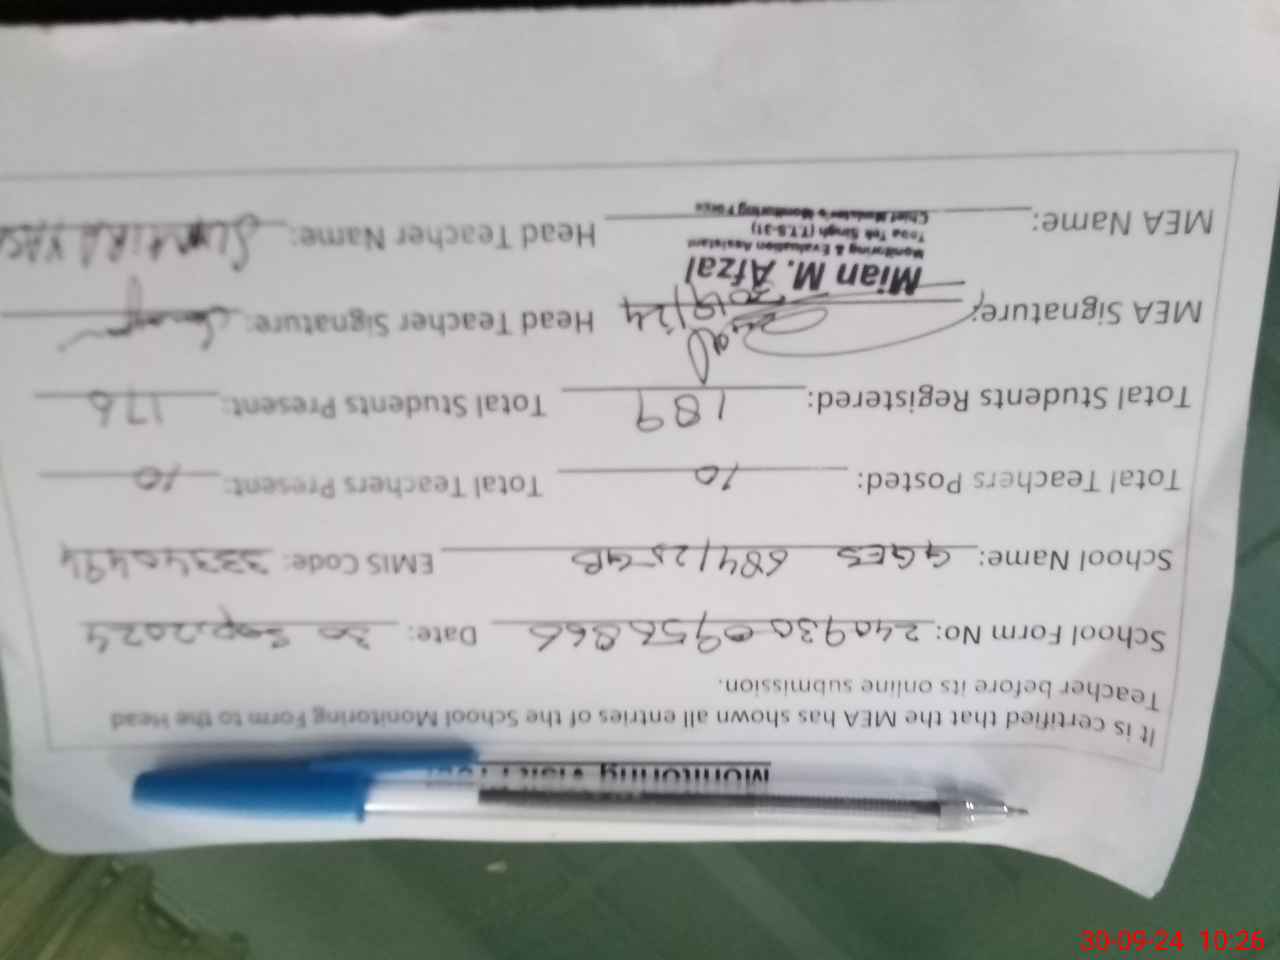 Monitoring Visit
It is certified that the MEA has shown all entries of the School Monitoring Form to the Head
Teacher before its online submission.
School Form No: 240930 0956866 Date: 30 Sep, 2024
School Name: GGES 684/25 GB EMIS Code: 33340494
Total Teachers Posted: 10 Total Teachers Present: 10
Total Students Registered: 189 Total Students Present: 176
MEA Signature: 30/9/24 Head Teacher Signature:
Mian M. Afzal
Monitoring & Evaluation Assistant
Toba Tek Singh (T.T.S-31)
Chief Minister's Monitoring Force
MEA Name: Head Teacher Name: SUMAIRA
30-09-24 10:26